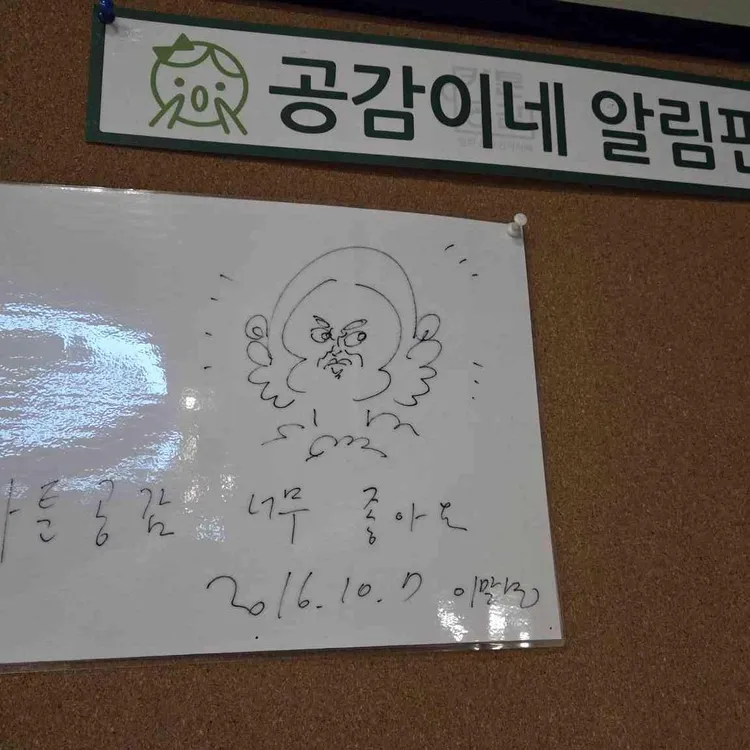 공감이네 알림판
카툰공감 너무 좋아요
2016.10.7 이말년